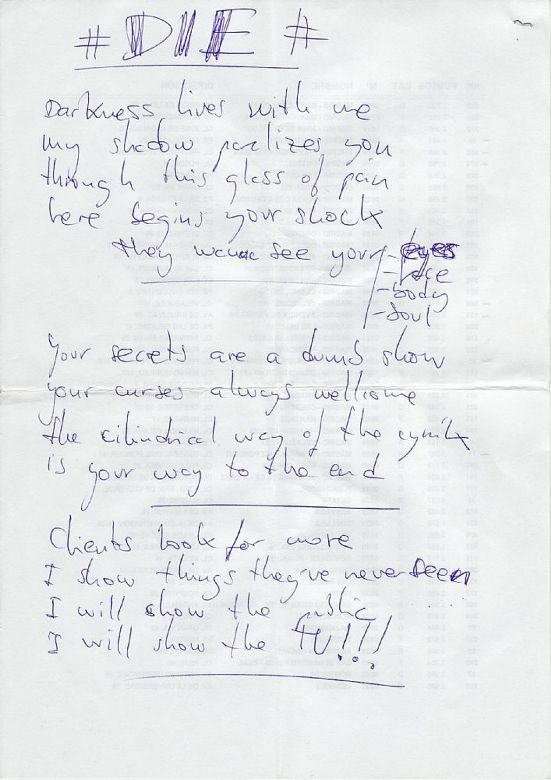 # DIE #
Darkness lives with me
my shadow parlizes you
through this glass of pain
here begins your shock
they wanna see your - eyes
- face
- body
- soul
Your secrets are a dumb show
your curses always wellcome
the cilindrical way of the cynik
is your way to the end
Clients look for more
I show things they've never seen
I will show the public
I will show the TV!!!